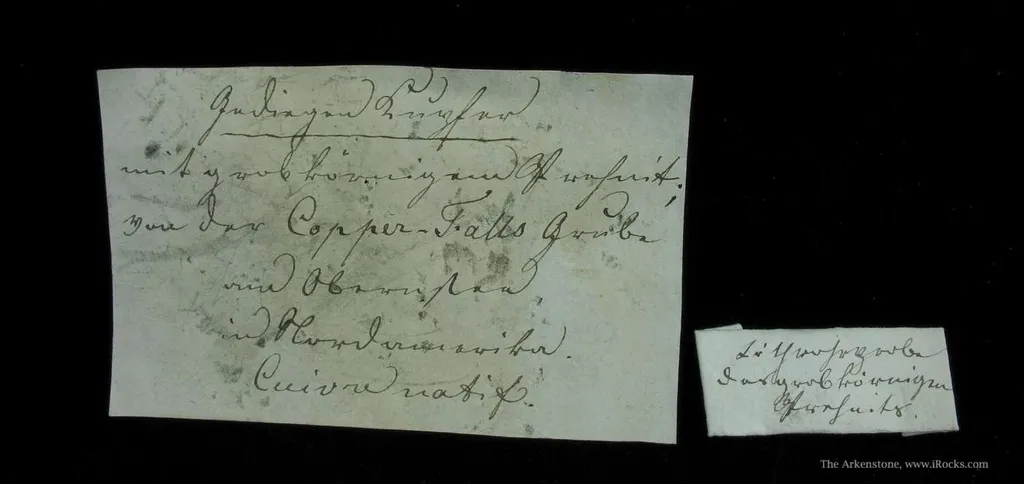 Gediegen Kupfer
mit grobkörnigem Prehnit,
von der Copper-Falls Grube
am Obernsee
in Nordamerika.
Cuivre natif.
Löthrohrprobe
des grobkörnigen
Prehnits.
The Arkenstone, www.iRocks.com